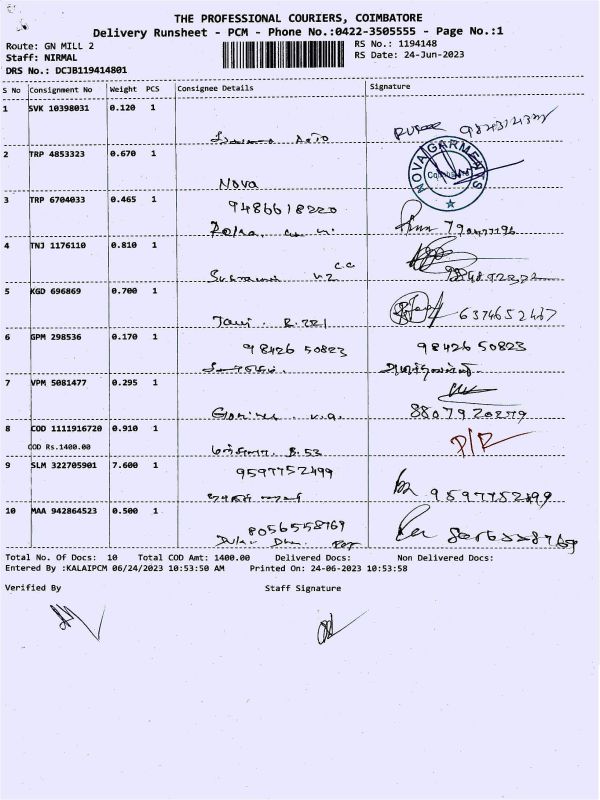 THE PROFESSIONAL COURIERS, COIMBATORE
Delivery Runsheet - PCM - Phone No.:0422-3505555 - Page No.:1
Route: GN MILL 2
RS No.: 1194148
Staff: NIRMAL
RS Date: 24-Jun-2023
DRS No.: DCJB119414801
S No Consignment No Weight PCS Consignee Details Signature
1 SVK 10398031 0.120 1
2 TRP 4853323 0.670 1
NOVA GARMENTS
Nova
3 TRP 6704033 0.465 1 9486618220
4 TNJ 1176110 0.810 1
C.C
5 KGD 696869 0.700 1
6374652467
6 GPM 298536 0.170 1 98426 50823 98426 50823
7 VPM 5081477 0.295 1
8807920279
8 COD 1111916720 0.910 1
COD Rs.1400.00
B.53
9 SLM 322705901 7.600 1 9597752499
9597752499
10 MAA 942864523 0.500 1
8056558769
Total No. Of Docs: 10 Total COD Amt: 1400.00 Delivered Docs: Non Delivered Docs:
Entered By :KALAIPCM 06/24/2023 10:53:50 AM Printed On: 24-06-2023 10:53:58
Verified By Staff Signature